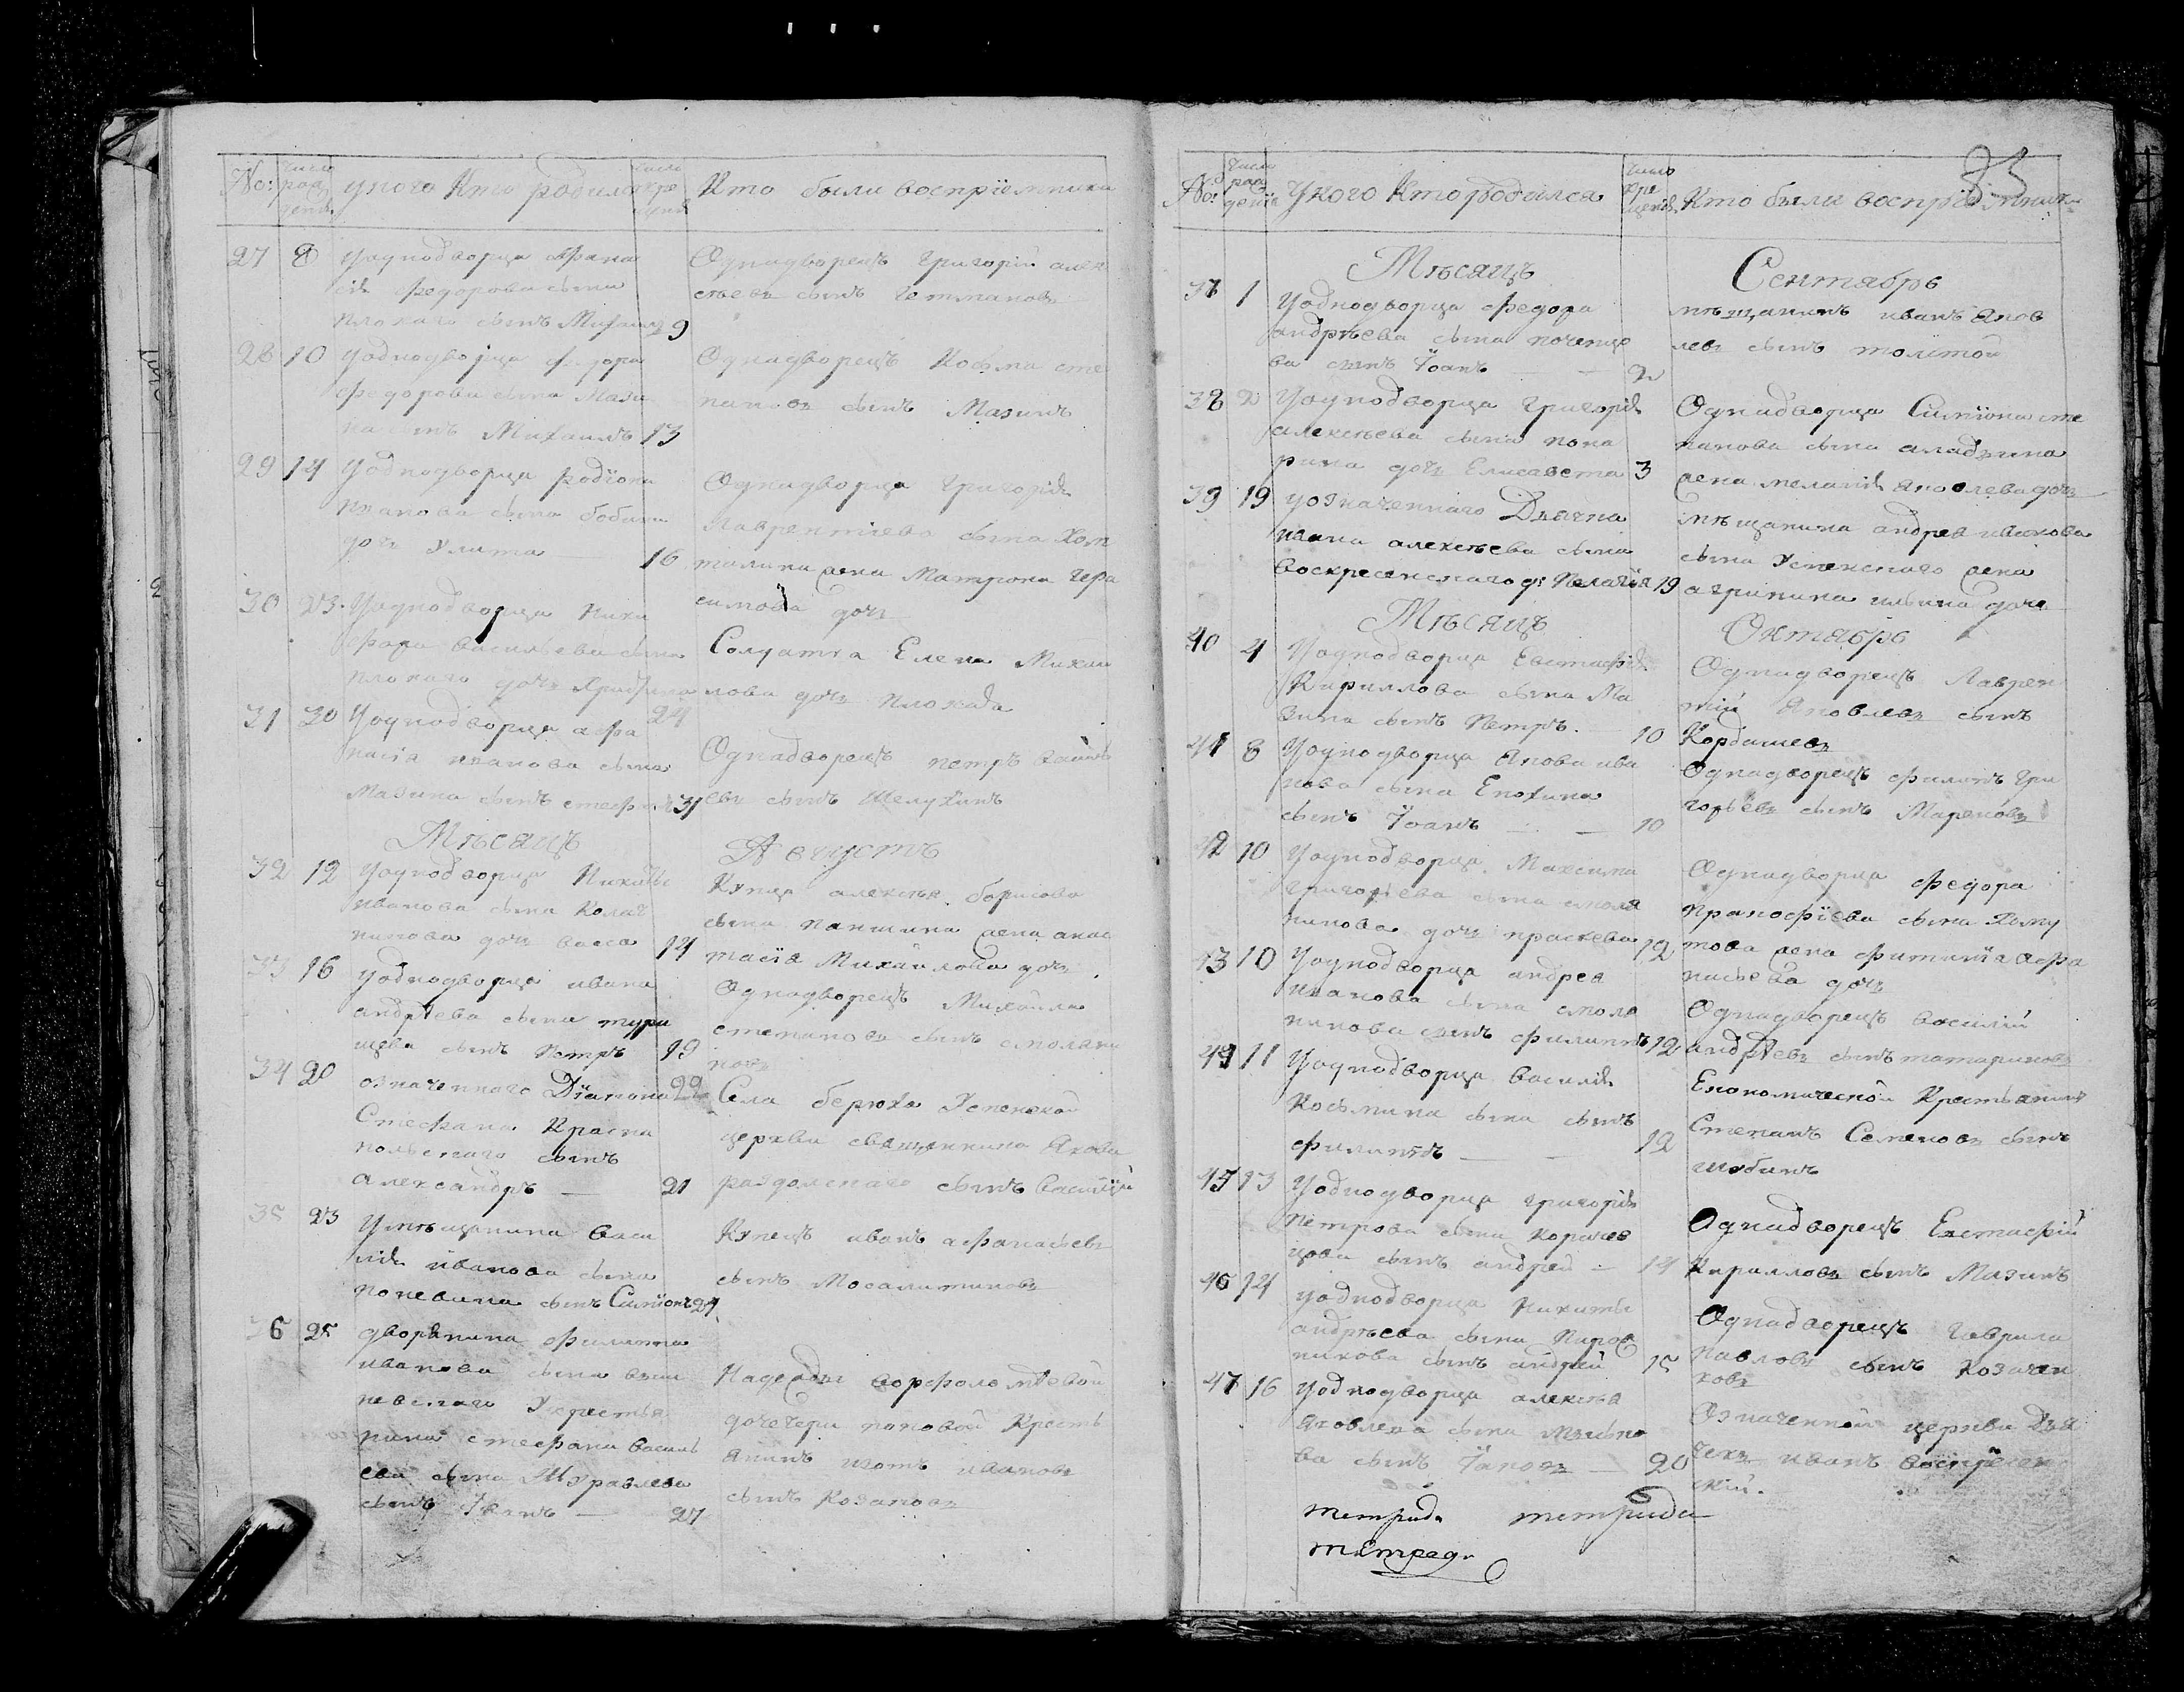 No: число рождения у кого кто родился число крещения Кто были воспрїемники
27 8 У однодворца Афана
сія Федорова сына
Плохаго сынъ Михаилъ 9
Однадворецъ Григорій Алек
сѣевъ сынъ Четманов
28 10 У однодворца Федора
Федорова сына Мази
на сынъ Михаилъ 13
Однадворецъ Косьма Сте
пановъ сынъ Мазинъ
29 14 У однодворца Родїона
Иванова сына Бобкина
дочь Улита 16
Однадворца Григорія
Лаврентіева сына
жена Матрона Гера
симова дочь
30 23 У однодворца Ники
фора Васильева сына
Плохаго дочь 24
Солдатка Елена Михаи
лова дочь Плохова
31 30 У однодворца Афа
насія Иванова сына
Мазина сынъ Стефанъ 31
Однадворецъ Петръ Василь
евъ сынъ Шелухинъ
Мѣсяцъ Августъ
32 12 У однодворца Никиты
Иванова сына Колач
никова дочь Васса 14
Купца Алексѣя Борисова
сына Паншина жена Анас
тасія Михайлова дочь
33 16 У однодворца Ивана
Андрѣева сына Тури
щева сынъ Петръ 19
Однадворецъ Михайла
Степановъ сынъ Смоляни
новъ
34 20 означеннаго Дїакона 22
Стефана Красно
польскаго сынъ
Александръ 21
Села Берюха Успенской
церкви священника Якова
Раздольскаго сынъ Василїй
35 23 У мѣщанина Васи
лія Иванова сына
Поневина сынъ Симїонъ 24
Купецъ Иванъ Афанасьевъ
сынъ Мосалитиновъ
36 25 дворянина Филиппа
Иванова сына
невскаго У крестья
нина Стефана Василь
ева сына Журавлева
сынъ Iванъ 27
Надежды Ворфоломѣевой
дочечери Поповой Кресть
янинъ Изотъ Ивановъ
сынъ Козаковъ
83
No: число рождения У кого кто родился число крещения Кто были воспрїемники
Мѣсяцъ Сентябрь
37 1 У однодворца Федора
Андрѣева сына Почепце
ва сынъ Їоанъ 2
мѣщанинъ Иванъ Яков
левъ сынъ Толстой
38 2 У однодворца Григорія
Алексѣева сына Пона
рина дочь Елисавета 3
Однадворца Симїона Сте
панова сына Аладьина
жена Меланія Яковлева дочь
39 19 У означеннаго Дьячка
Ивана Алексѣева сына
Воскресенскаго д: Пелагїя 19
мѣщанина Андрея Иванова
сына Успенскаго жена
Агрипина Ильина дочь
Мѣсяцъ Октябрь
40 4 У однодворца Евстафія
Кириллова сына Ма
зина сынъ Петръ. 10
Однадворецъ Лаврен
тій Яковлевъ сынъ
Кордашевъ
41 8 У однодворца Якова Ива
нова сына Енохина
сынъ Їоанъ 10
Однадворецъ Филипъ Гри
горьевъ сынъ Мареновъ
42 10 У однодворца Максима
Григорьева сына Смоля
нинова дочь Праскева 12
Однадворца Федора
Пракофїева сына Хому
това жена Фитинїя Афа
насьева дочь
43 10 У однодворца Андрея
Иванова сына Смоля
нинова сынъ Филиппъ 12
Однадворецъ Василій
Андрѣевъ сынъ Татариновъ
44 11 У однодворца Василія
Косьмина сына сынъ
Филиппъ 12
Економической Крестьянинъ
Степанъ Семеновъ сынъ
Шубинъ
45 13 У однодворца Григорія
Петрова сына Корачев
цова сынъ Андрей 14
Однадворецъ Евстафій
Кирилловъ сынъ Мазинъ
46 14 У однодворца Никиты
Андрѣева сына Пирож
никова сынъ Андрей 15
Однадворецъ Гаврила
Павловъ сынъ Козачен
ковъ
47 16 У однодворца Алексѣя
Яковлева сына
ва сынъ Їаковъ 20
Означенной церкви Дья
чекъ Иванъ Воскресен
скій.
тетради тетради
тетради